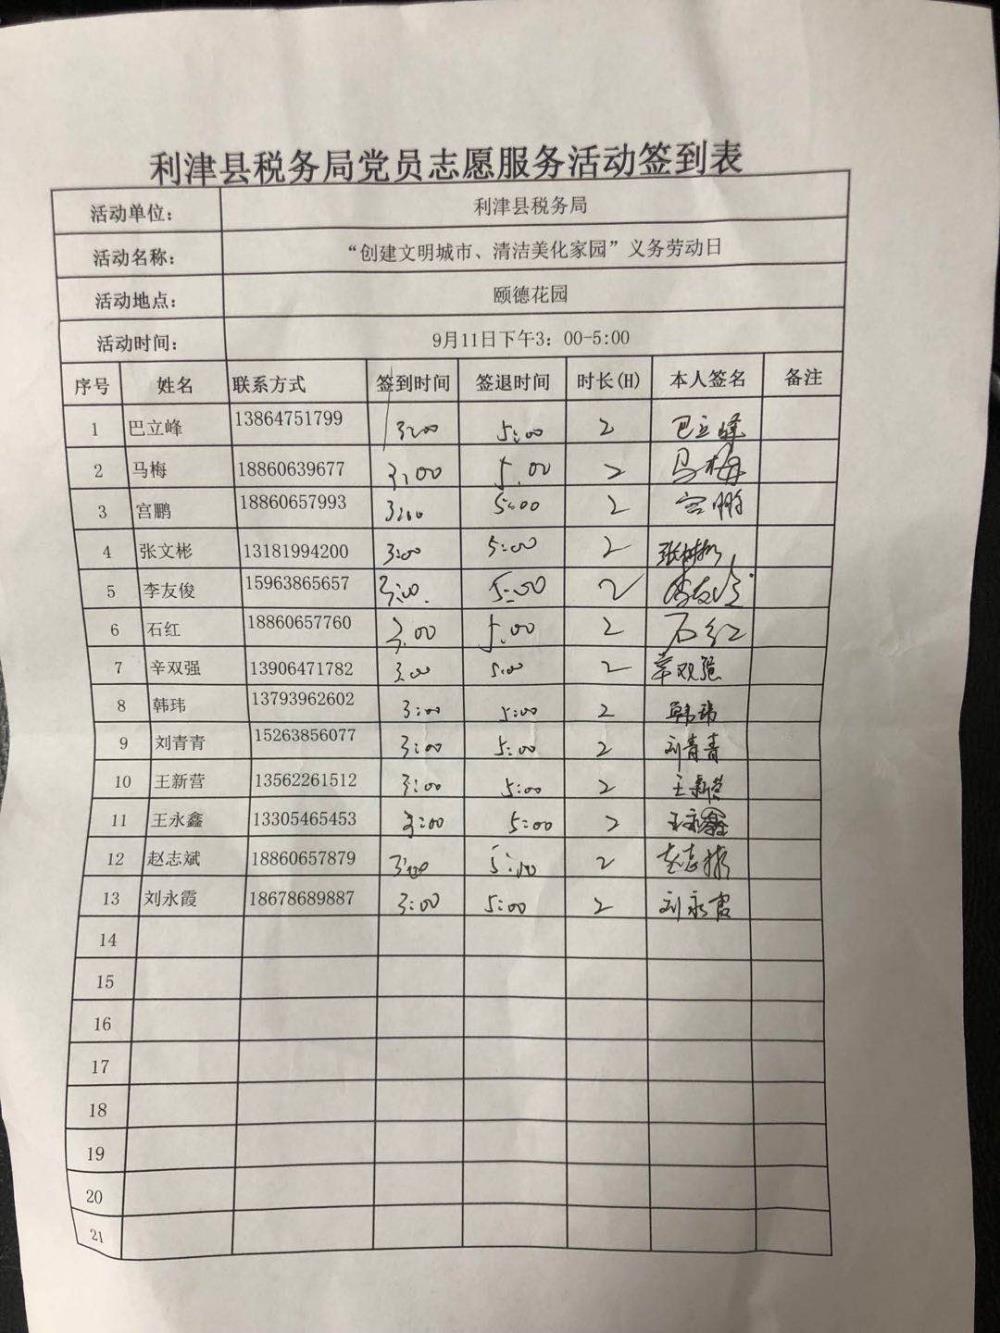 利津县税务局党员志愿服务活动签到表
活动单位： 利津县税务局
活动名称： “创建文明城市、清洁美化家园”义务劳动日
活动地点： 颐德花园
活动时间： 9月11日下午3：00-5:00
序号 姓名 联系方式 签到时间 签退时间 时长(H) 本人签名 备注
1 巴立峰 13864751799 3:00 5:00 2 巴立峰
2 马梅 18860639677 3:00 5:00 2 马梅
3 宫鹏 18860657993 3:00 5:00 2 宫鹏
4 张文彬 13181994200 3:00 5:00 2
5 李友俊 15963865657 3:00 5:00 2 李友俊
6 石红 18860657760 3:00 5:00 2 石红
7 辛双强 13906471782 3:00 5:00 2 辛双强
8 韩玮 13793962602 3:00 5:00 2 韩玮
9 刘青青 15263856077 3:00 5:00 2 刘青青
10 王新营 13562261512 3:00 5:00 2 王新营
11 王永鑫 13305465453 3:00 5:00 2 王永鑫
12 赵志斌 18860657879 3:00 5:00 2 赵志斌
13 刘永霞 18678689887 3:00 5:00 2 刘永霞
14
15
16
17
18
19
20
21